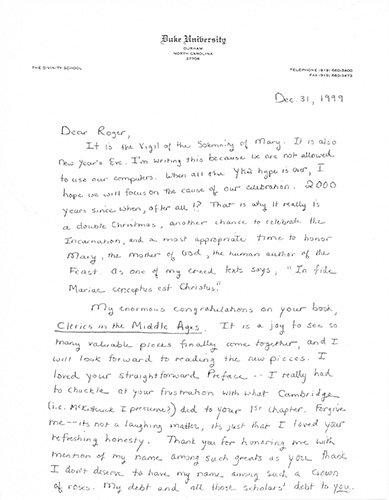 Duke University
DURHAM
NORTH CAROLINA
27708
THE DIVINITY SCHOOL
TELEPHONE (919) 660-3400
FAX (919) 660-3473
Dec. 31, 1999
Dear Roger,
It is the Vigil of the Solemnity of Mary. It is also
New Year's Eve. I'm writing this because we are not allowed
to use our computers. When all the Y2K hype is over, I
hope we will focus on the cause of our celebration. 2000
years since when, after all!? That is why it really is
a double Christmas, another chance to celebrate the
Incarnation, and a most appropriate time to honor
Mary, the mother of God, the human author of the
Feast. As one of my creed texts says, "In fide
Mariae conceptus est Christus."
My enormous congratulations on your book,
Clerics in the Middle Ages. It is a joy to see so
many valuable pieces finally come together, and I
will look forward to reading the new pieces. I
loved your straightforward Preface -- I really had
to chuckle at your frustration with what Cambridge
(i.e. McKitterick I presume?) did to your 1st chapter. Forgive
me -- it's not a laughing matter, its just that I loved your
refreshing honesty. Thank you for honoring me with
mention of my name among such greats as you thank
I don't deserve to have my name among such a crown
of roses. My debt and all those scholars' debt to you.